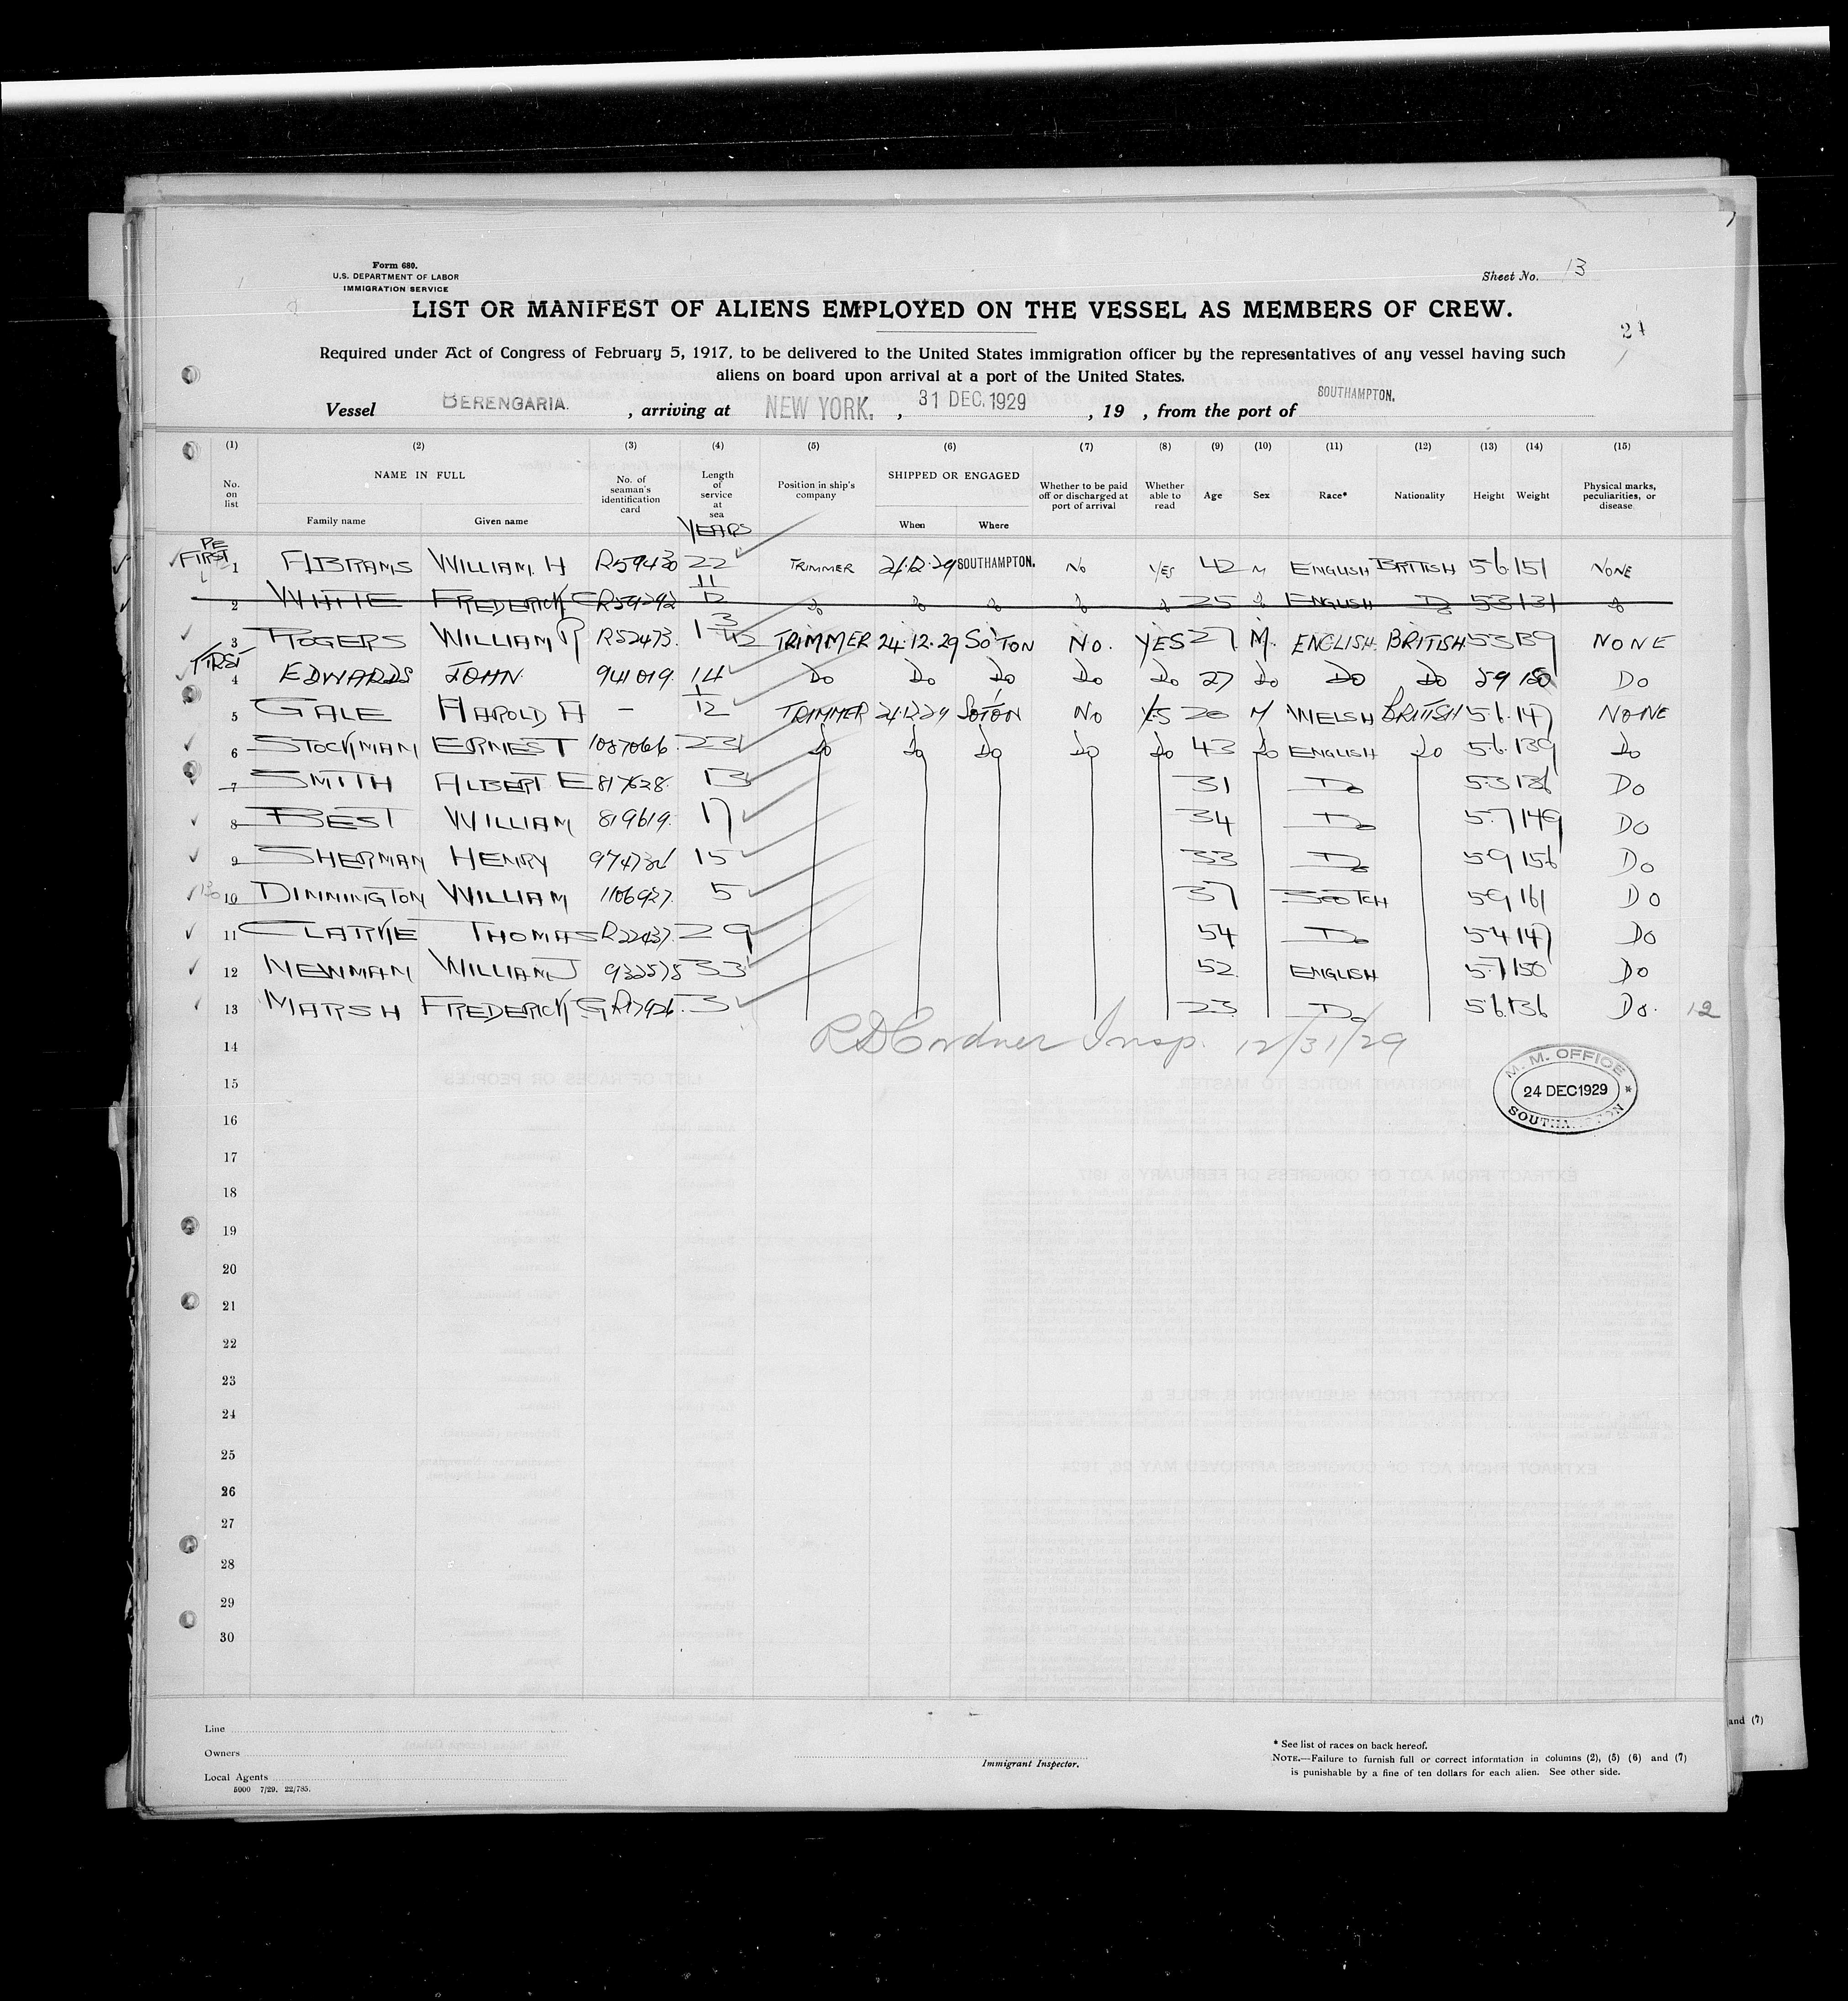 Form 680.
U.S. DEPARTMENT OF LABOR
IMMIGRATION SERVICE
Sheet No. 13
LIST OR MANIFEST OF ALIENS EMPLOYED ON THE VESSEL AS MEMBERS OF CREW.
Required under Act of Congress of February 5, 1917, to be delivered to the United States immigration officer by the representatives of any vessel having such
aliens on board upon arrival at a port of the United States.
Vessel BERENGARIA. , arriving at NEW YORK. , 31 DEC. 1929 , 19 , from the port of SOUTHAMPTON.
(1) (2) (3) (4) (5) (6) (7) (8) (9) (10) (11) (12) (13) (14) (15)
No. on list NAME IN FULL Family name Given name No. of seaman's identification card Length of service at sea YEARS Position in ship's company SHIPPED OR ENGAGED When Where Whether to be paid off or discharged at port of arrival Whether able to read Age Sex Race* Nationality Height Weight Physical marks, peculiarities, or disease
FIRST 1 ABRAMS WILLIAM. H R59430 22 TRIMMER 24.12.29 SOUTHAMPTON. No YES 42 M ENGLISH BRITISH 5.6. 151 NONE
2 WHITE FREDERICK C 11/12 Do Do Do Do Do 25 Do ENGLISH Do 5.3 131 Do
3 ROGERS WILLIAM R R52473. 1 3/12 TRIMMER 24.12.29 SO'TON No. YES 27 M. ENGLISH. BRITISH. 5.3 139 NONE
FIRST 4 EDWARDS JOHN. 941019. 14 Do Do Do Do Do 27 Do Do Do 5.9 Do
5 GALE HAROLD A – 1/12 TRIMMER 24.12.29 SO'TON No YES 20 M WELSH BRITISH 5.6. 147 NONE
6 STOCKMAN ERNEST 1087066. 23 Do Do Do Do Do 43 Do ENGLISH Do 5.6. 139 Do
7 SMITH ALBERT E 817628. 13 31 Do 5.3 136 Do
8 BEST WILLIAM 819619. 17 34 Do 5.7 149 Do
9 SHERMAN HENRY 15 33 Do 5.9 156 Do
10 DINNINGTON WILLIAM 1106927. 5 37 SCOTCH 5.9 161 Do
11 CLARKE THOMAS R22437. 29 54 Do 5.4 147 Do
12 NEWMAN WILLIAM J 932575 33 52. ENGLISH 5.7 150 Do
13 MARSH FREDERICK G 3 23 Do 5.6. 136 Do. 12
14 R D Cordner Insp. 12/31/29
M. M. OFFICE
24 DEC 1929
SOUTHAMPTON
15
16
17
18
19
20
21
22
23
24
25
26
27
28
29
30
Line
Owners
Local Agents
5000 7/29. 22/785.
Immigrant Inspector.
* See list of races on back hereof.
NOTE.—Failure to furnish full or correct information in columns (2), (5) (6) and (7)
is punishable by a fine of ten dollars for each alien. See other side.
and (7)